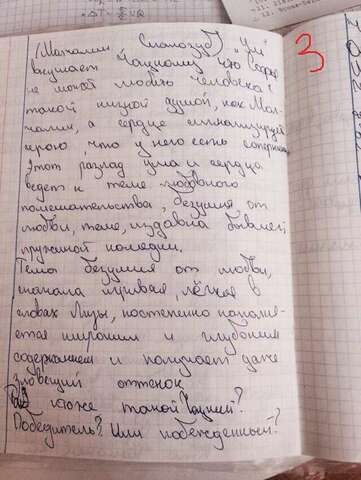 (Молчалин Скалозуб) „Ум"
внушает Чацкому что Софья
не может любить человека с
такой низкой душой, как Мол-
чалин, а сердце сигнализирует
герою что у него есть соперник
Этот разлад ума и сердца
ведет к теме любовного
помешательства, безумия от
любви, теме, издавна бывшей
пружиной комедии.
Тема безумия от любви,
сначала игривая, лёгкая в
словах Лизы, постепенно наполня-
ется широким и глубоким
содержанием и получает даже
зловещий оттенок
кто же такой Чацкий?
Победитель? Или побежденный?
3